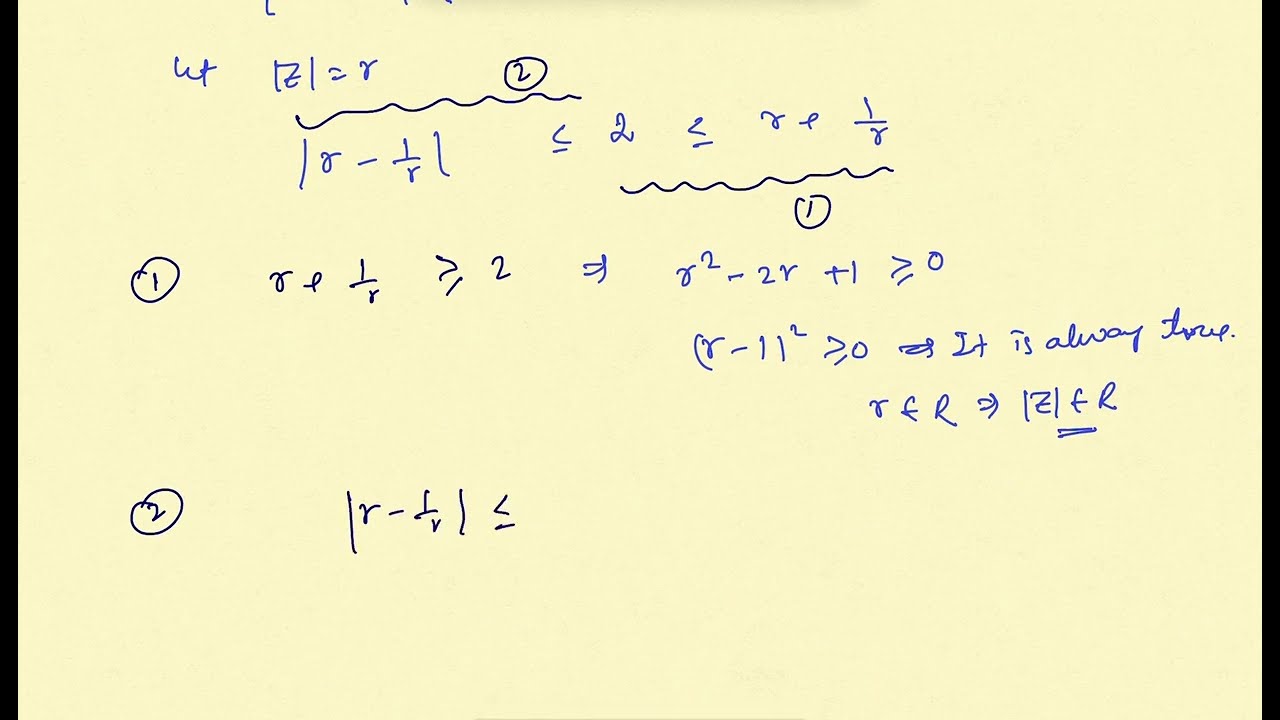 let |z| = r
②
|r - 1/r| ≤ 2 ≤ r + 1/r
①
① r + 1/r ≥ 2 ⇒ r² - 2r + 1 ≥ 0
(r - 1)² ≥ 0 ⇒ It is alway true.
r ∈ R ⇒ |z| ∈ R
② |r - 1/r| ≤